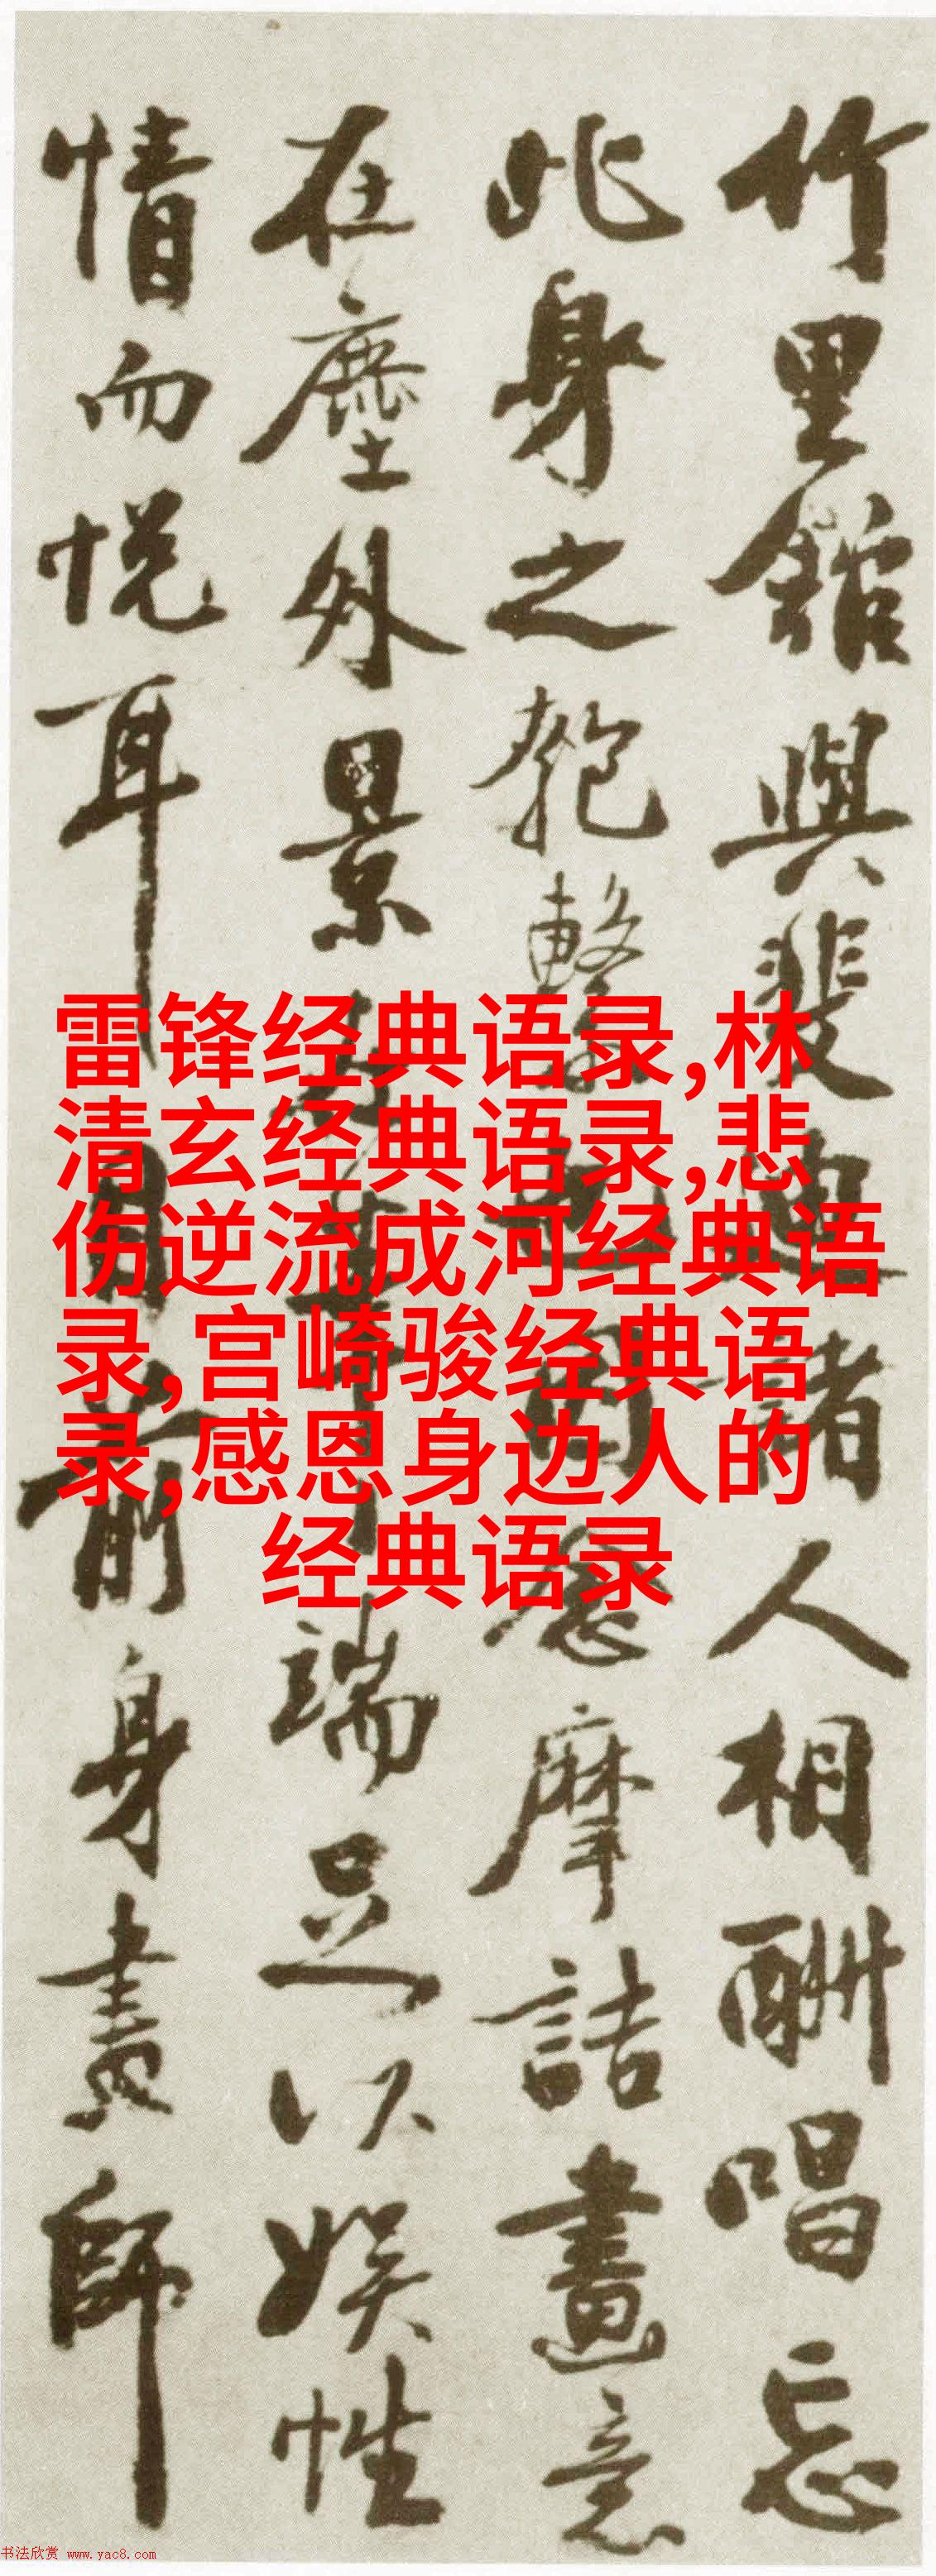 竹里館與裴迪諸人相酬唱忘
此身之匏繫也因念摩詰畫意
在塵外景
端足以娱性
情而悦耳目前身畫師
雷锋经典语录,林
清玄经典语录,悲
伤逆流成河经典语
录,宫崎骏经典语
录,感恩身边人的
经典语录
书法欣赏 www.yac8.com